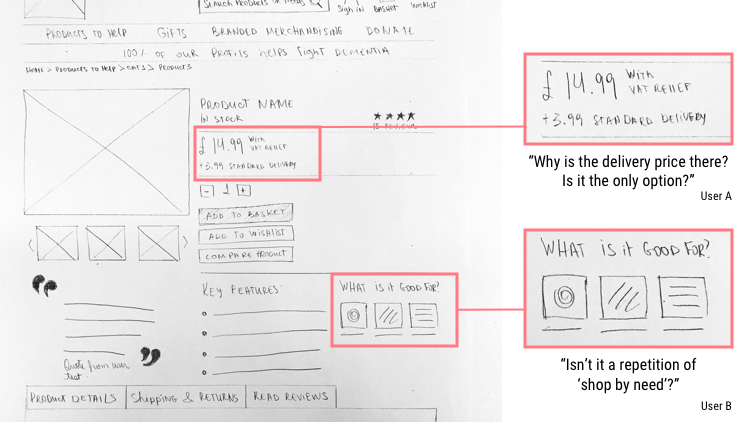 Search Products or needs
Sign in BASKET Wishlist
PRODUCTS TO HELP GIFTS BRANDED MERCHANDISING DONATE
100% OF OUR PROFITS HELPS FIGHT DEMENTIA
HOME > PRODUCTS TO HELP > CATS > PRODUCTS
PRODUCT NAME
IN STOCK
£14.99 WITH
VAT RELIEF
+3.99 STANDARD DELIVERY
- 1 +
ADD TO BASKET
ADD TO WISHLIST
COMPARE PRODUCT
KEY FEATURES:
WHAT IS IT GOOD FOR?
Quote from user
test
PRODUCT DETAILS Shipping & RETURNS READ REVIEWS
£14.99 WITH
VAT RELIEF
+3.99 STANDARD DELIVERY
“Why is the delivery price there?
Is it the only option?”
User A
WHAT IS it GOOD FOR?
“Isn’t it a repetition of
‘shop by need’?”
User B